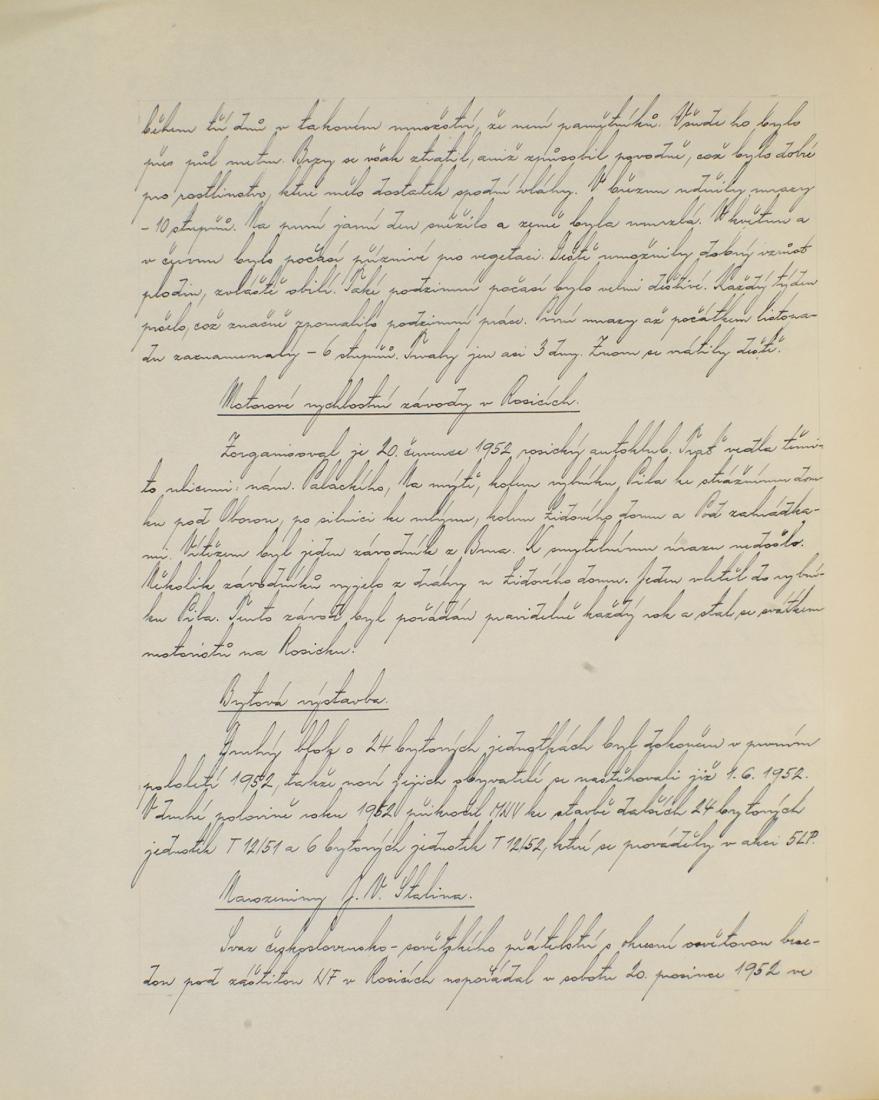 během tří dnů v takovém množství, že není pamětníků. Všude ho bylo
přes půl metru. Brzy se však ztratil, aniž způsobil povodně, což bylo dobré
pro rostlinstvo, které mělo dostatek spodní vláhy. V březnu udeřily mrazy
- 10 stupňů. Na první jarní den sněžilo a země byla umrzlá. V květnu a
v červnu bylo počasí příznivé pro vegetaci. Deště umožnily dobrý vzrůst
plodin, zvláště obilí. Také podzimní počasí bylo velmi deštivé. Každý týden
pršelo, což značně zpomalilo podzimní práce. První mrazy až počátkem listopa-
du zaznamenaly - 6 stupňů. Trvaly jen asi 3 dny. Znovu se vrátily deště.
Motorové rychlostní závody v Rosicích.
Zorganisoval je 20. července 1952 rosický autoklub. Trať vedla těmi-
to ulicemi: nám. Palackého, Na mýtě, kolem rybníku Pila ke strážnímu dom-
ku pod Oborou, po silnici ke mlýnu, kolem Židového domu a Pod zahrádka-
mi. Vítězem byl jeden závodník z Brna. K smrtelnému úrazu nedošlo.
Několik závodníků vyjelo z dráhy u Židového domu. Jeden vletěl do rybní-
ku Pila. Tento závod byl pořádán pravidelně každý rok a stal se svátkem
motoristů na Rosicku.
Bytová výstavba.
Druhý blok o 24 bytových jednotkách byl dokončen v prvním
pololetí 1952, takže noví jejich obyvatelé se nastěhovali již 1. 6. 1952.
V druhé polovině roku 1952 přikročil MNV ke stavbě dalších 24 bytových
jednotek T 12/51 a 6 bytových jednotek T 12/52, které se prováděly v akci 5LP.
Narozeniny J. V. Stalina.
Svaz československo-sovětského přátelství s okresní osvětovou bese-
dou pod záštitou NF v Rosicích uspořádal v sobotu 20. prosince 1952 ve